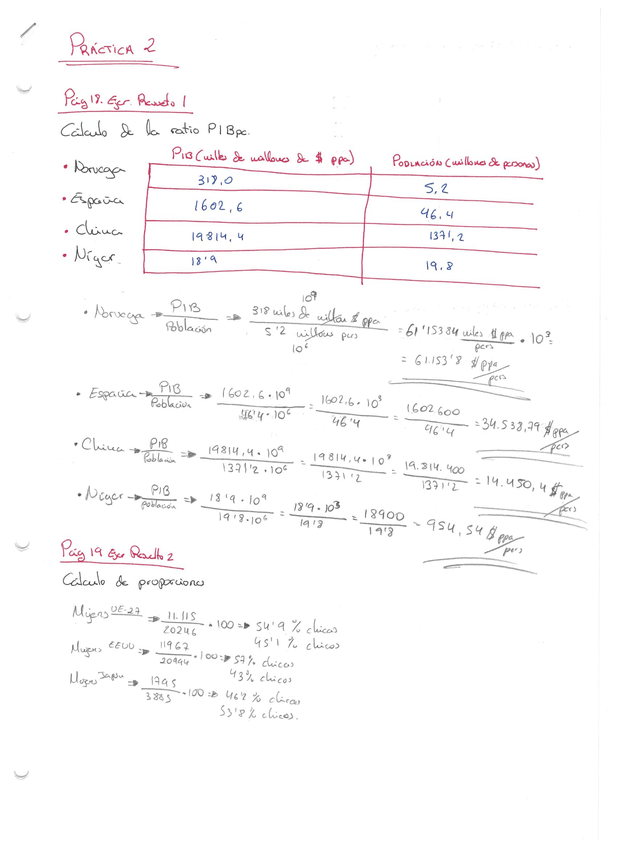 PRÁCTICA 2
Pág 18. Ejer. Resuelto 1
Cálculo de la ratio PIBpc.
PIB (miles de millones de $ ppa) Población (millones de personas)
• Noruega 318,0 5,2
• España 1602,6 46.4
• China 19814,4 1371,2
• Níger. 18'9 19.8
10⁹
• Noruega → PIB/Población ⇒ 318 miles de millón $ ppa / 5'2 millón pers = 61'15384 miles $ ppa/pers • 10³ =
10⁶
= 61.153'8 $ ppa/pers
• España → PIB/Población ⇒ 1602,6 • 10⁹ / 46'4 • 10⁶ = 1602,6 • 10³ / 46'4 = 1602600 / 46'4 = 34.538,79 $ ppa/pers
• China → PIB/Población ⇒ 19814,4 • 10⁹ / 1371'2 • 10⁶ = 19814,4 • 10³ / 1371'2 = 19.814.400 / 1371'2 = 14.450,4 $ ppa/pers
• Níger → PIB/población ⇒ 18'9 • 10⁹ / 19'8 • 10⁶ = 18'9 • 10³ / 19'8 = 18900 / 19'8 = 954,54 $ ppa/pers
Pág 19 Ejer Resuelto 2
Cálculo de proporciones
Mujeres UE-27 ⇒ 11.115 / 20246 • 100 ⇒ 54'9 % chicas
45'1 % chicos
Mujeres EEUU ⇒ 11967 / 20994 • 100 ⇒ 57% chicas
43% chicos
Mujeres Japón ⇒ 1795 / 3885 • 100 ⇒ 46'2 % chicas
53'8 % chicos.